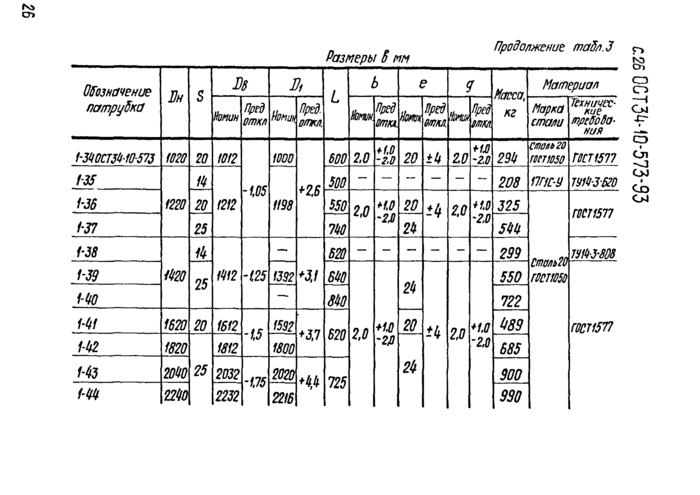 26
Продолжение табл.3
Размеры в мм
с.26 ОСТ34-10-573-93
Обозначение патрубка Dн S Dв D1 L b e g Масса, кг Материал
Номин Пред откл Номин Пред. откл. Номин. Пред откл. Номин Пред откл. Номин. Пред откл. Марка стали Техничес-кие требова-ния
1-34 ОСТ34-10-573 1020 20 1012 1000 600 2,0 +1,0 -2,0 20 ±4 2,0 +1,0 -2,0 294 Сталь 20 ГОСТ1050 ГОСТ1577
1-35 14 500 — — — — — — 208 17Г1С-У ТУ14-3-620
1-36 1220 20 1212 -1,05 1198 +2,6 550 2,0 +1,0 -2,0 20 ±4 2,0 +1,0 -2,0 325 ГОСТ1577
1-37 25 740 24 544
1-38 14 — 620 — — — — — — 299 Сталь 20 ГОСТ1050 ТУ14-3-808
1-39 1420 25 1412 -1,25 1392 +3,1 640 24 550
1-40 — 840 722
1-41 1620 20 1612 -1,5 1592 +3,7 620 2,0 +1,0 -2,0 20 ±4 2,0 +1,0 -2,0 489 ГОСТ1577
1-42 1820 1812 1800 685
1-43 2040 25 2032 -1,75 2020 +4,4 725 24 900
1-44 2240 2232 2216 990